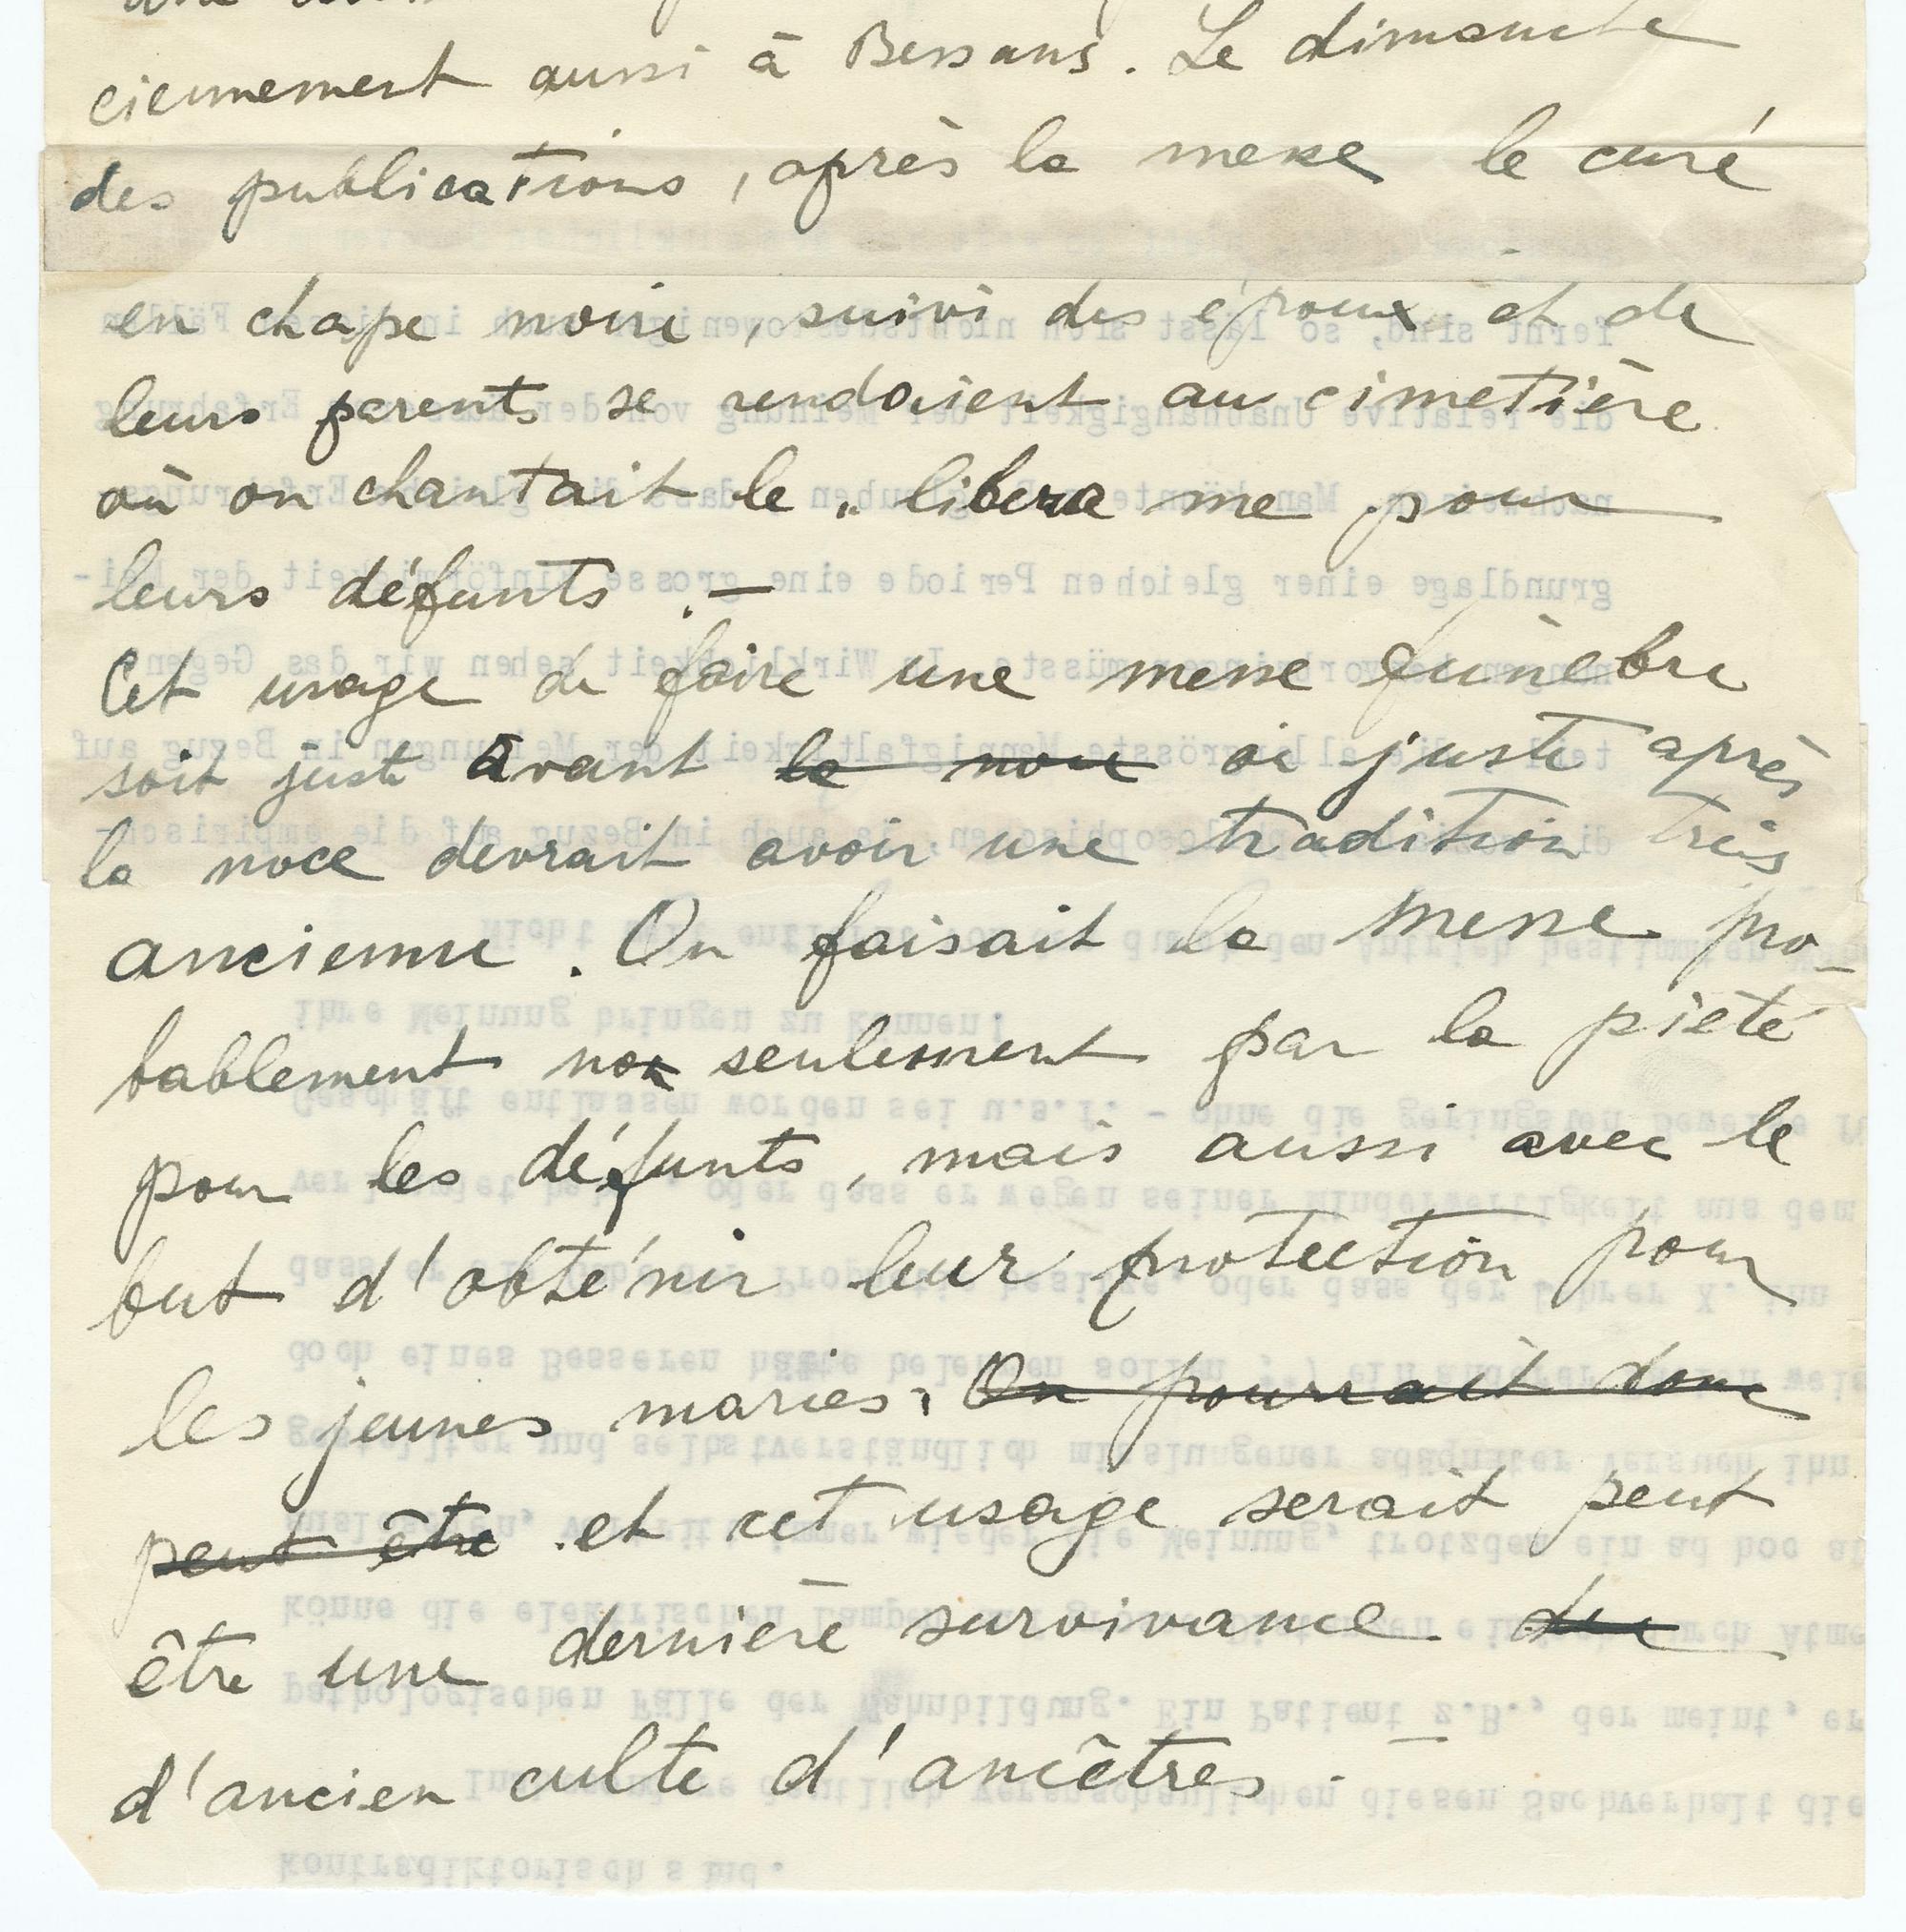 ciennement aussi à Bessans. Le dimanche
des publications, après la messe le curé
en chape noire, suivi des époux et de
leurs parents se rendaient au cimetière
où on chantait le „libera me pour
leurs défunts.—
Cet usage de faire une messe funèbre
soit juste avant la noce oi juste après
la noce devrait avoir une tradition très
ancienne. On faisait la messe pro-
bablement non seulement par la piété
pour les défunts, mais aussi avec le
but d'obténir leur protection pour
les jeunes maries, On pourrait donc
peut être et cet usage serait peut
être une dernière survivance de
d'ancien culte d'ancêtres.